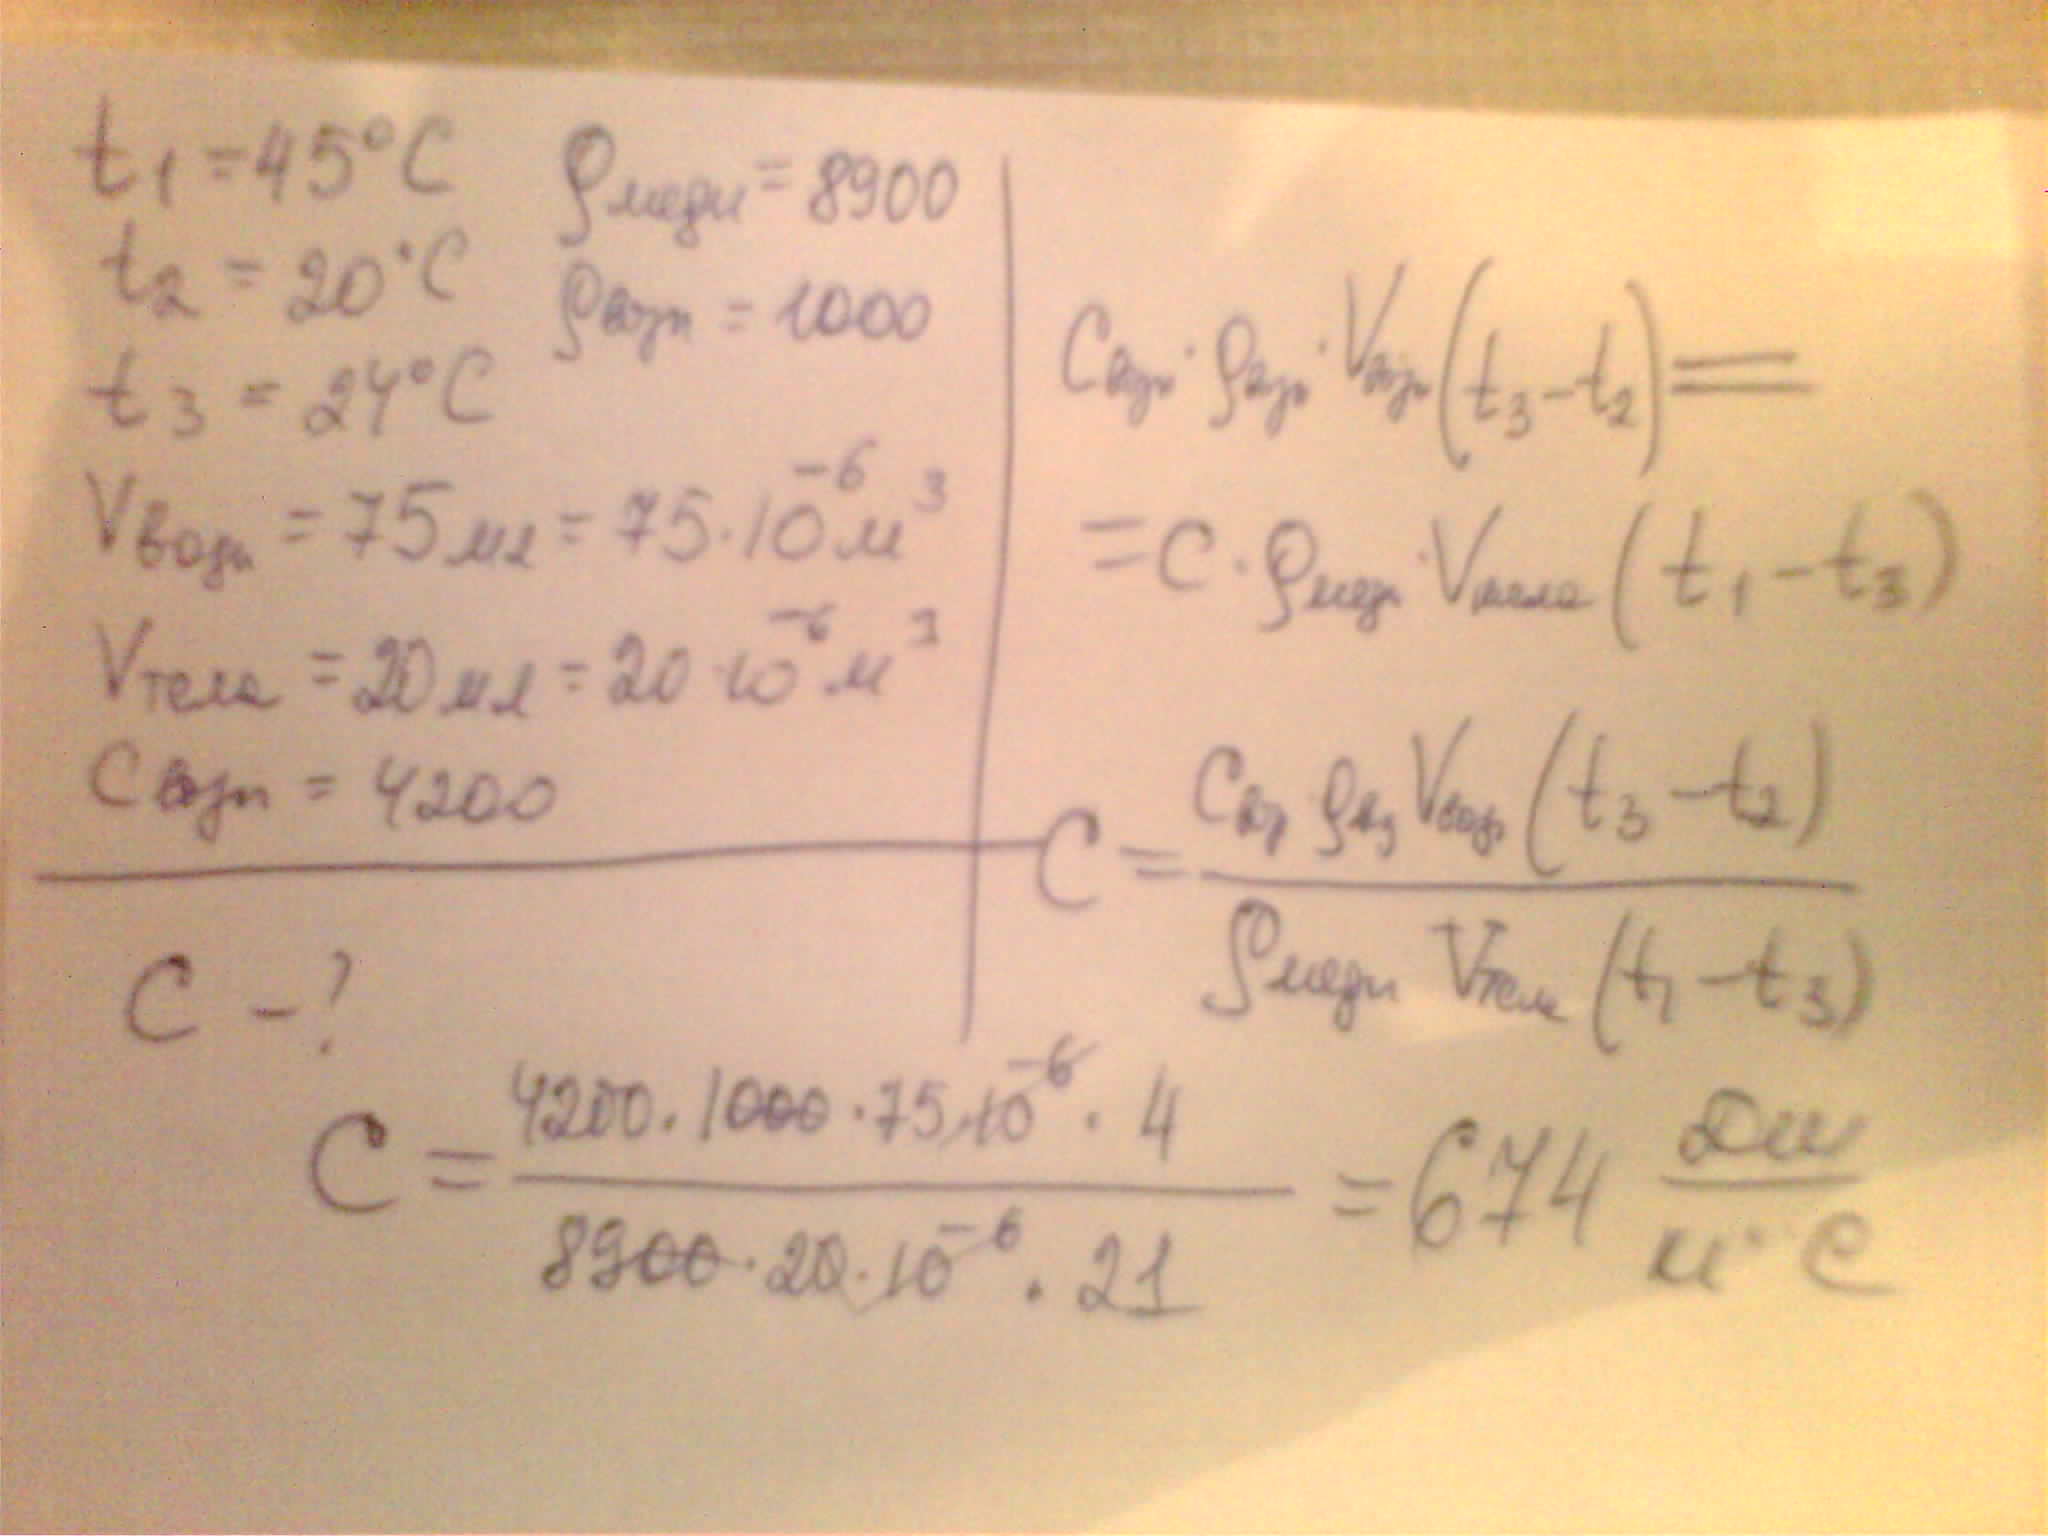 t₁ = 45°C
t₂ = 20°C
t₃ = 24°C
Vводы = 75 мл = 75·10⁻⁶ м³
Vтела = 20 мл = 20·10⁻⁶ м³
Cводы = 4200
C – ?
ρмеди = 8900
ρводы = 1000
Cводы · ρводы · Vводы (t₃ – t₂) =
= C · ρмеди · Vтела (t₁ – t₃)
C = Cвод ρвод Vводы (t₃ – t₂) / ρмеди Vтела (t₁ – t₃)
C = 4200 · 1000 · 75 · 10⁻⁶ · 4 / 8900 · 20 · 10⁻⁶ · 21 = 674 Дж / кг °C